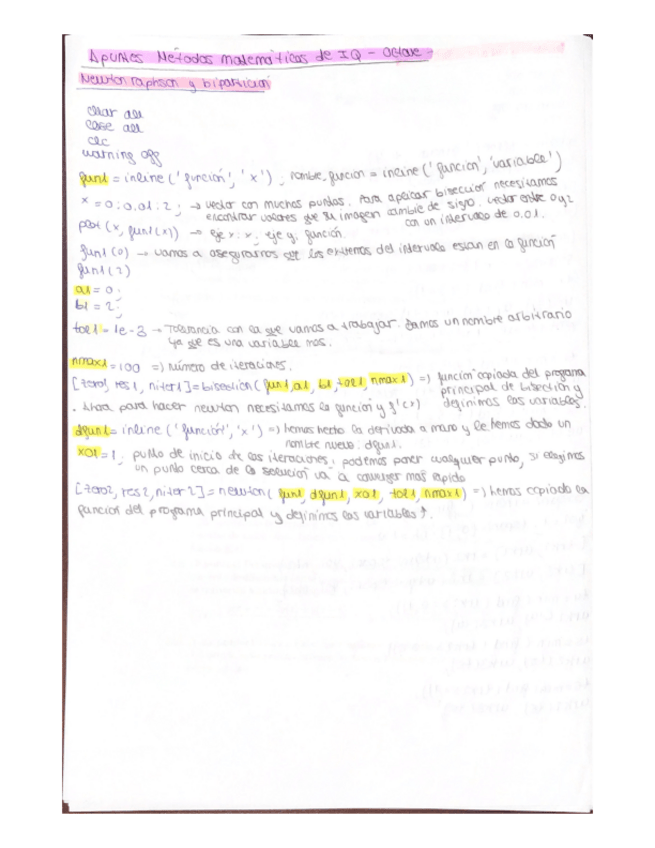 Apuntes Métodos matemáticos de IQ - Octave -
Newton raphson y bipartición
clear all
close all
clc
warning off
fun1 = inline('función', 'x') ; nombre_funcion = inline('funcion', 'variable')
x = 0:0.01:2; → vector con muchos puntos. Para aplicar bisección necesitamos
encontrar valores que su imagen cambie de signo. vector entre 0 y 2
con un intervalo de 0.01.
plot(x, fun1(x)) → eje x: x; eje y: función.
fun1(0) → vamos a asegurarnos que los extremos del intervalo estan en la función
fun1(2)
a1 = 0;
b1 = 2;
tol1 = 1e-3 → Tolerancia con la que vamos a trabajar. Damos un nombre arbitrario
ya que es una variable mas.
nmax1 = 100 => número de iteraciones.
[zero1, res1, niter1] = bisection(fun1, a1, b1, tol1, nmax1) => función copiada del programa
principal de bisection y
definimos las variables.
. Ahora para hacer newton necesitamos la función y f'(x)
dfun1 = inline('función', 'x') => hemos hecho la derivada a mano y le hemos dado un
nombre nuevo: dfun1.
x01 = 1; punto de inicio de las iteraciones; podemos poner cualquier punto, si elegimos
un punto cerca de la solución va a converger mas rapido
[zero2, res2, niter2] = newton(fun1, dfun1, x01, tol1, nmax1) => hemos copiado la
función del programa principal y definimos las variables ↑.